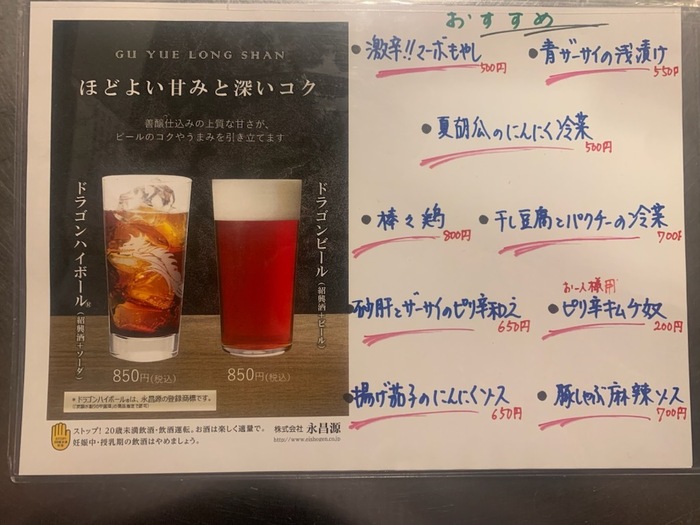 GU YUE LONG SHAN
ほどよい甘みと深いコク
善醸仕込みの上質な甘さが、
ビールのコクやうまみを引き立てます
ドラゴンハイボール
(紹興酒+ソーダ)
ドラゴンビール
(紹興酒+ビール)
850円(税込)
850円(税込)
*ドラゴンハイボール®は、永昌源の登録商標です。
ストップ! 20歳未満飲酒・飲酒運転。お酒は楽しく適量で。
妊娠中・授乳期の飲酒はやめましょう。
株式会社 永昌源
http://www.eishogen.co.jp
おすすめ
●激辛!!マーボもやし
500円
●青ザーサイの浅漬け
550円
●夏胡瓜のにんにく冷菜
500円
●棒々鶏
800円
●干し豆腐とパクチーの冷菜
700円
砂肝とザーサイのピリ辛和え
650円
お一人様用
●ピリ辛キムチ奴
200円
揚げ茄子のにんにくソース
650円
●豚しゃぶ麻辣ソース
700円